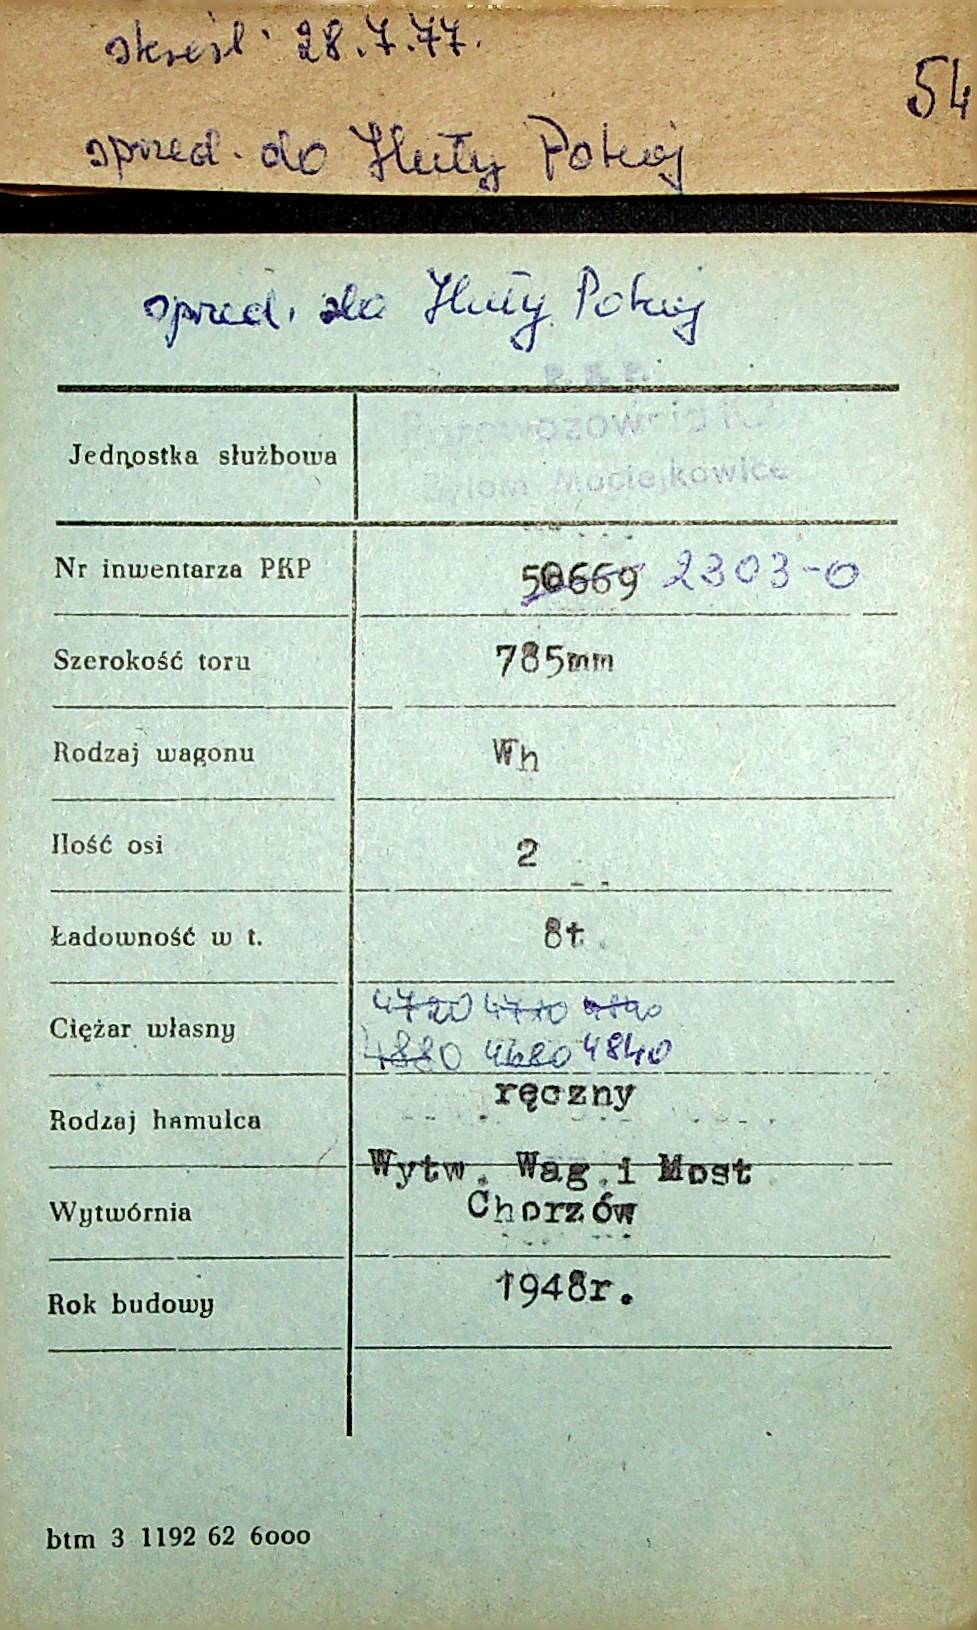 skreśl. 28.7.77.
54
sprzed. do Huty Pokój
sprzed. do Huty Pokój
P.K.P.
Parowozownia
Bytom Maciejkowice
Jednostka służbowa
Nr inwentarza PKP 50669 2303-0
Szerokość toru 785mm
Rodzaj wagonu Wh
Ilość osi 2
Ładowność w t. 8t
4720 4710 4890
Ciężar własny
4880 4680 4840
ręczny
Rodzaj hamulca
Wytw. Wag. i Most
Wytwórnia Chorzów
Rok budowy 1948r.
btm 3 1192 62 6000